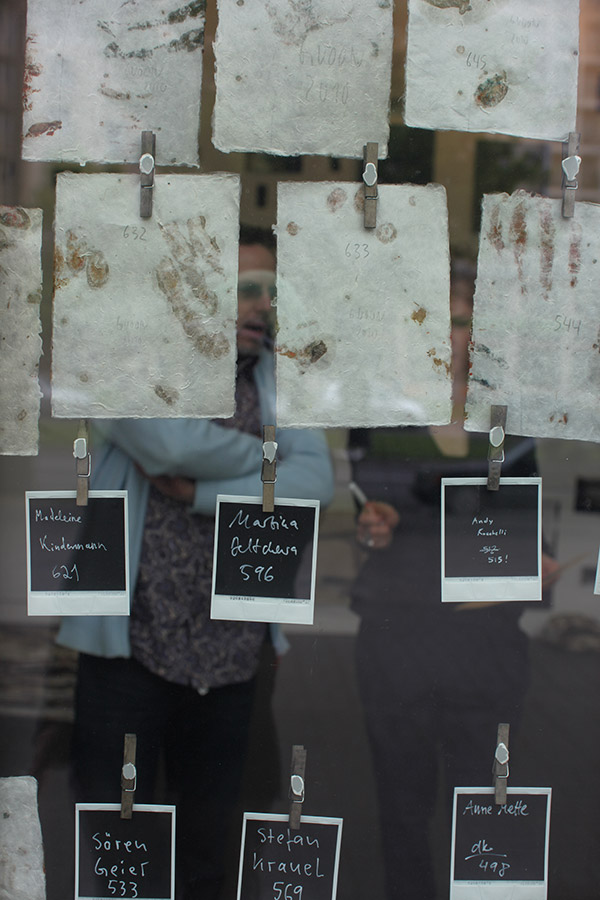 2010
645
632
633
544
Madeleine
Kindermann
621
Martina
596
Andy
512
515!
Sören
Geier
533
Stefan
Krauel
569
Anne Mette
dk
498